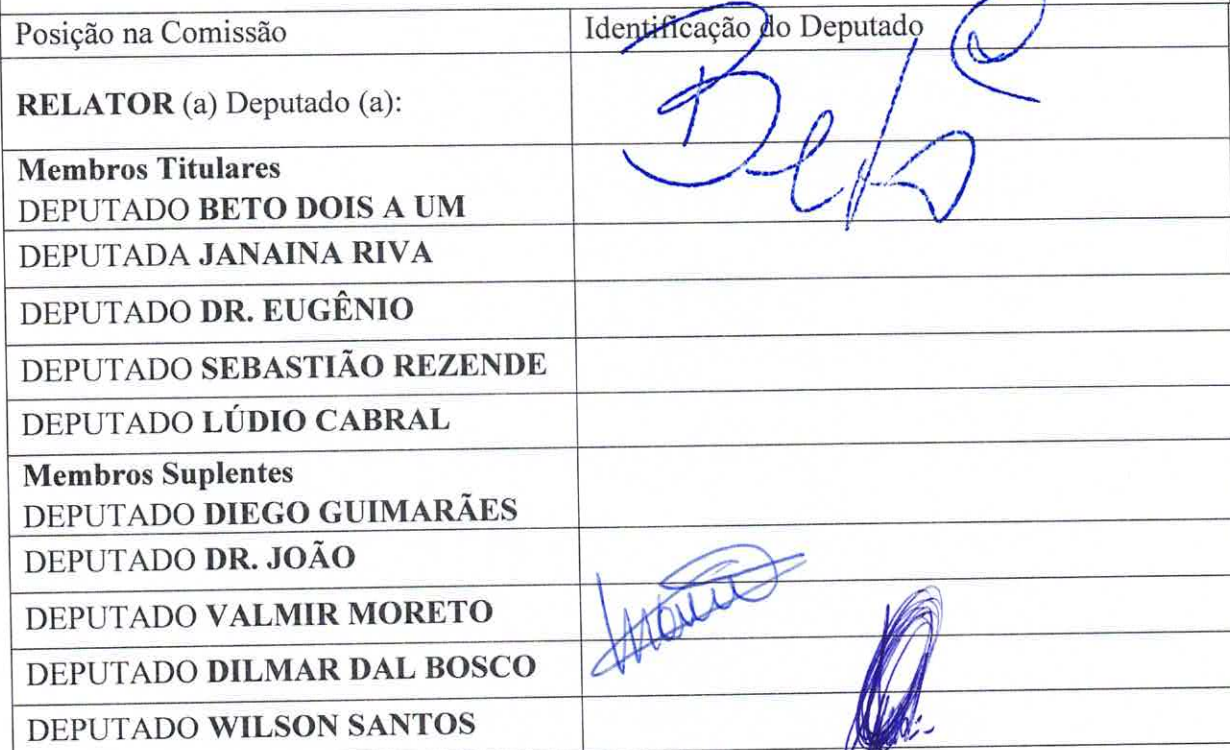 Posição na Comissão
Identificação do Deputado
RELATOR (a) Deputado (a):
Beto
Membros Titulares
DEPUTADO BETO DOIS A UM
DEPUTADA JANAINA RIVA
DEPUTADO DR. EUGÊNIO
DEPUTADO SEBASTIÃO REZENDE
DEPUTADO LÚDIO CABRAL
Membros Suplentes
DEPUTADO DIEGO GUIMARÃES
DEPUTADO DR. JOÃO
DEPUTADO VALMIR MORETO
DEPUTADO DILMAR DAL BOSCO
DEPUTADO WILSON SANTOS